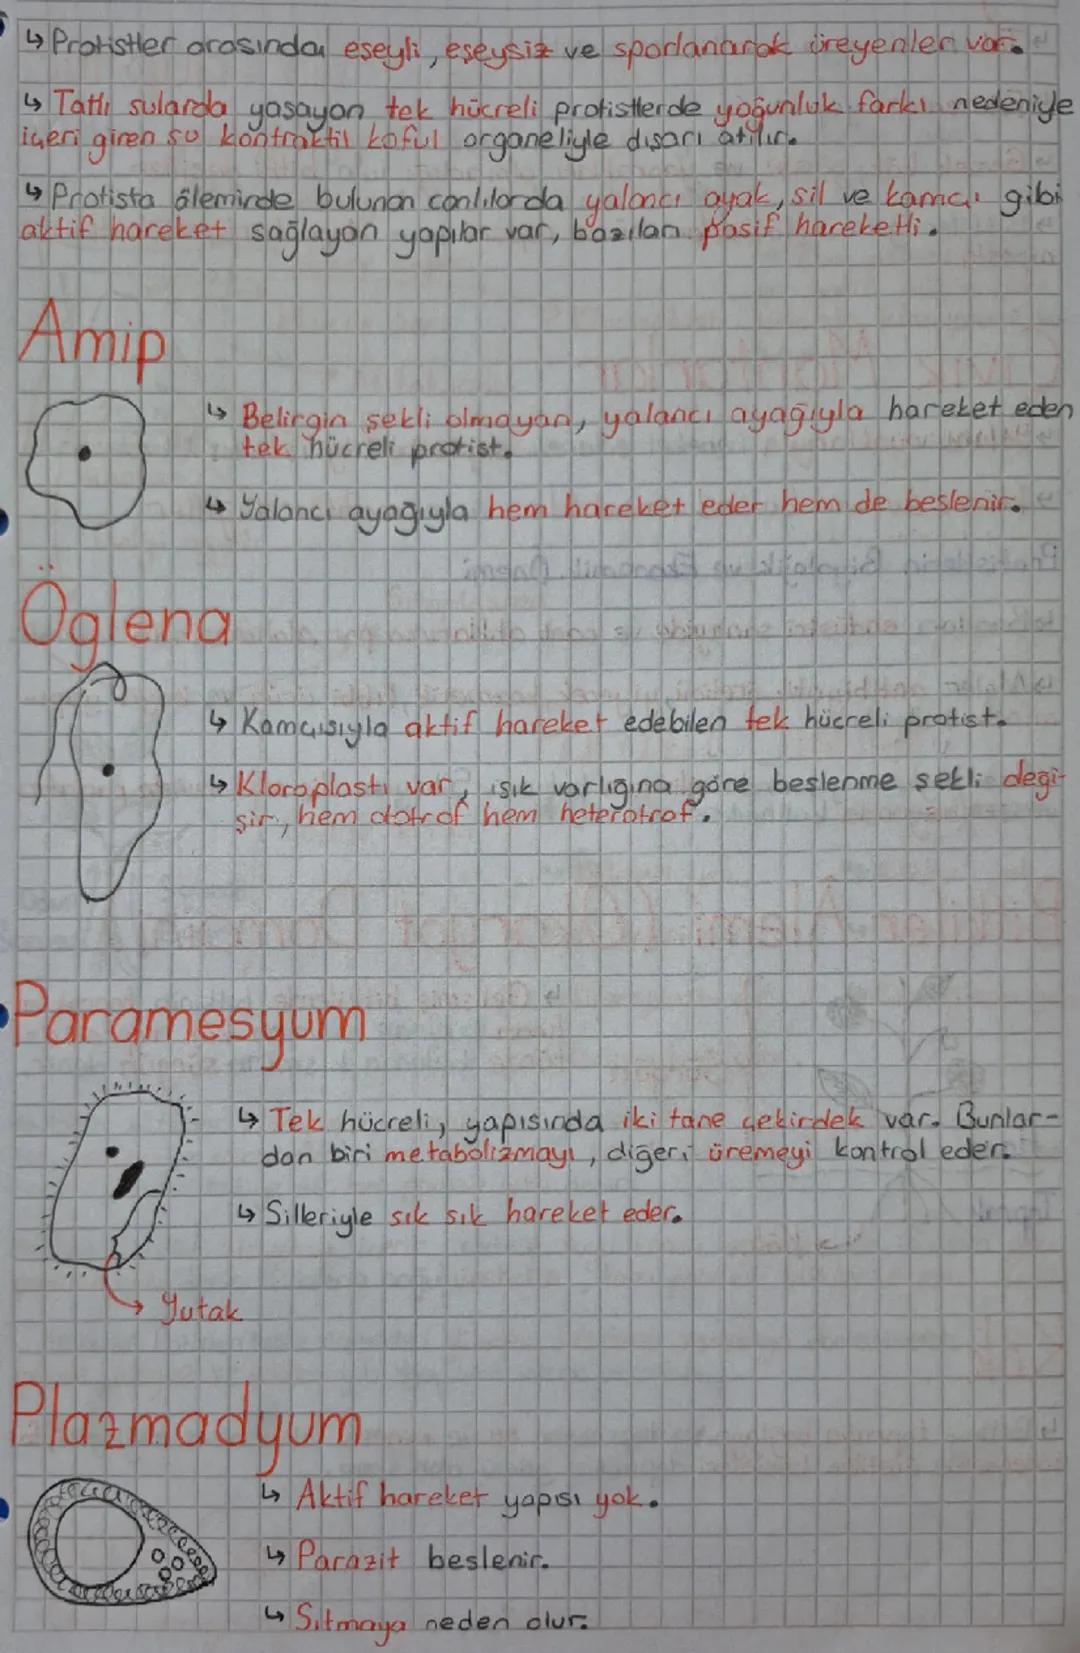 ↳ Protistler arasında eşeyli, eşeysiz ve sporlanarak üreyenler var.
↳ Tatlı sularda yaşayan tek hücreli protistlerde yoğunluk farkı nedeniyle
içeri giren su kontraktil koful organeliyle dışarı atılır.
↳ Protista âleminde bulunan canlılarda yalancı ayak, sil ve kamçı gibi
aktif hareket sağlayan yapılar var, bazıları pasif hareketli.
Amip
↳ Belirgin şekli olmayan, yalancı ayağıyla hareket eden
tek hücreli protist.
↳ Yalancı ayağıyla hem hareket eder hem de beslenir.
Öglena
↳ Kamçısıyla aktif hareket edebilen tek hücreli protist.
↳ Kloroplastı var, ışık varlığına göre beslenme şekli deği-
şir, hem ototrof hem heterotrof.
Paramesyum
↳ Tek hücreli, yapısında iki tane çekirdek var. Bunlar-
dan biri metabolizmayı, diğeri üremeyi kontrol eder.
↳ Silleriyle sık sık hareket eder.
Yutak
Plazmadyum
↳ Aktif hareket yapısı yok.
↳ Parazit beslenir.
↳ Sıtmaya neden olur.